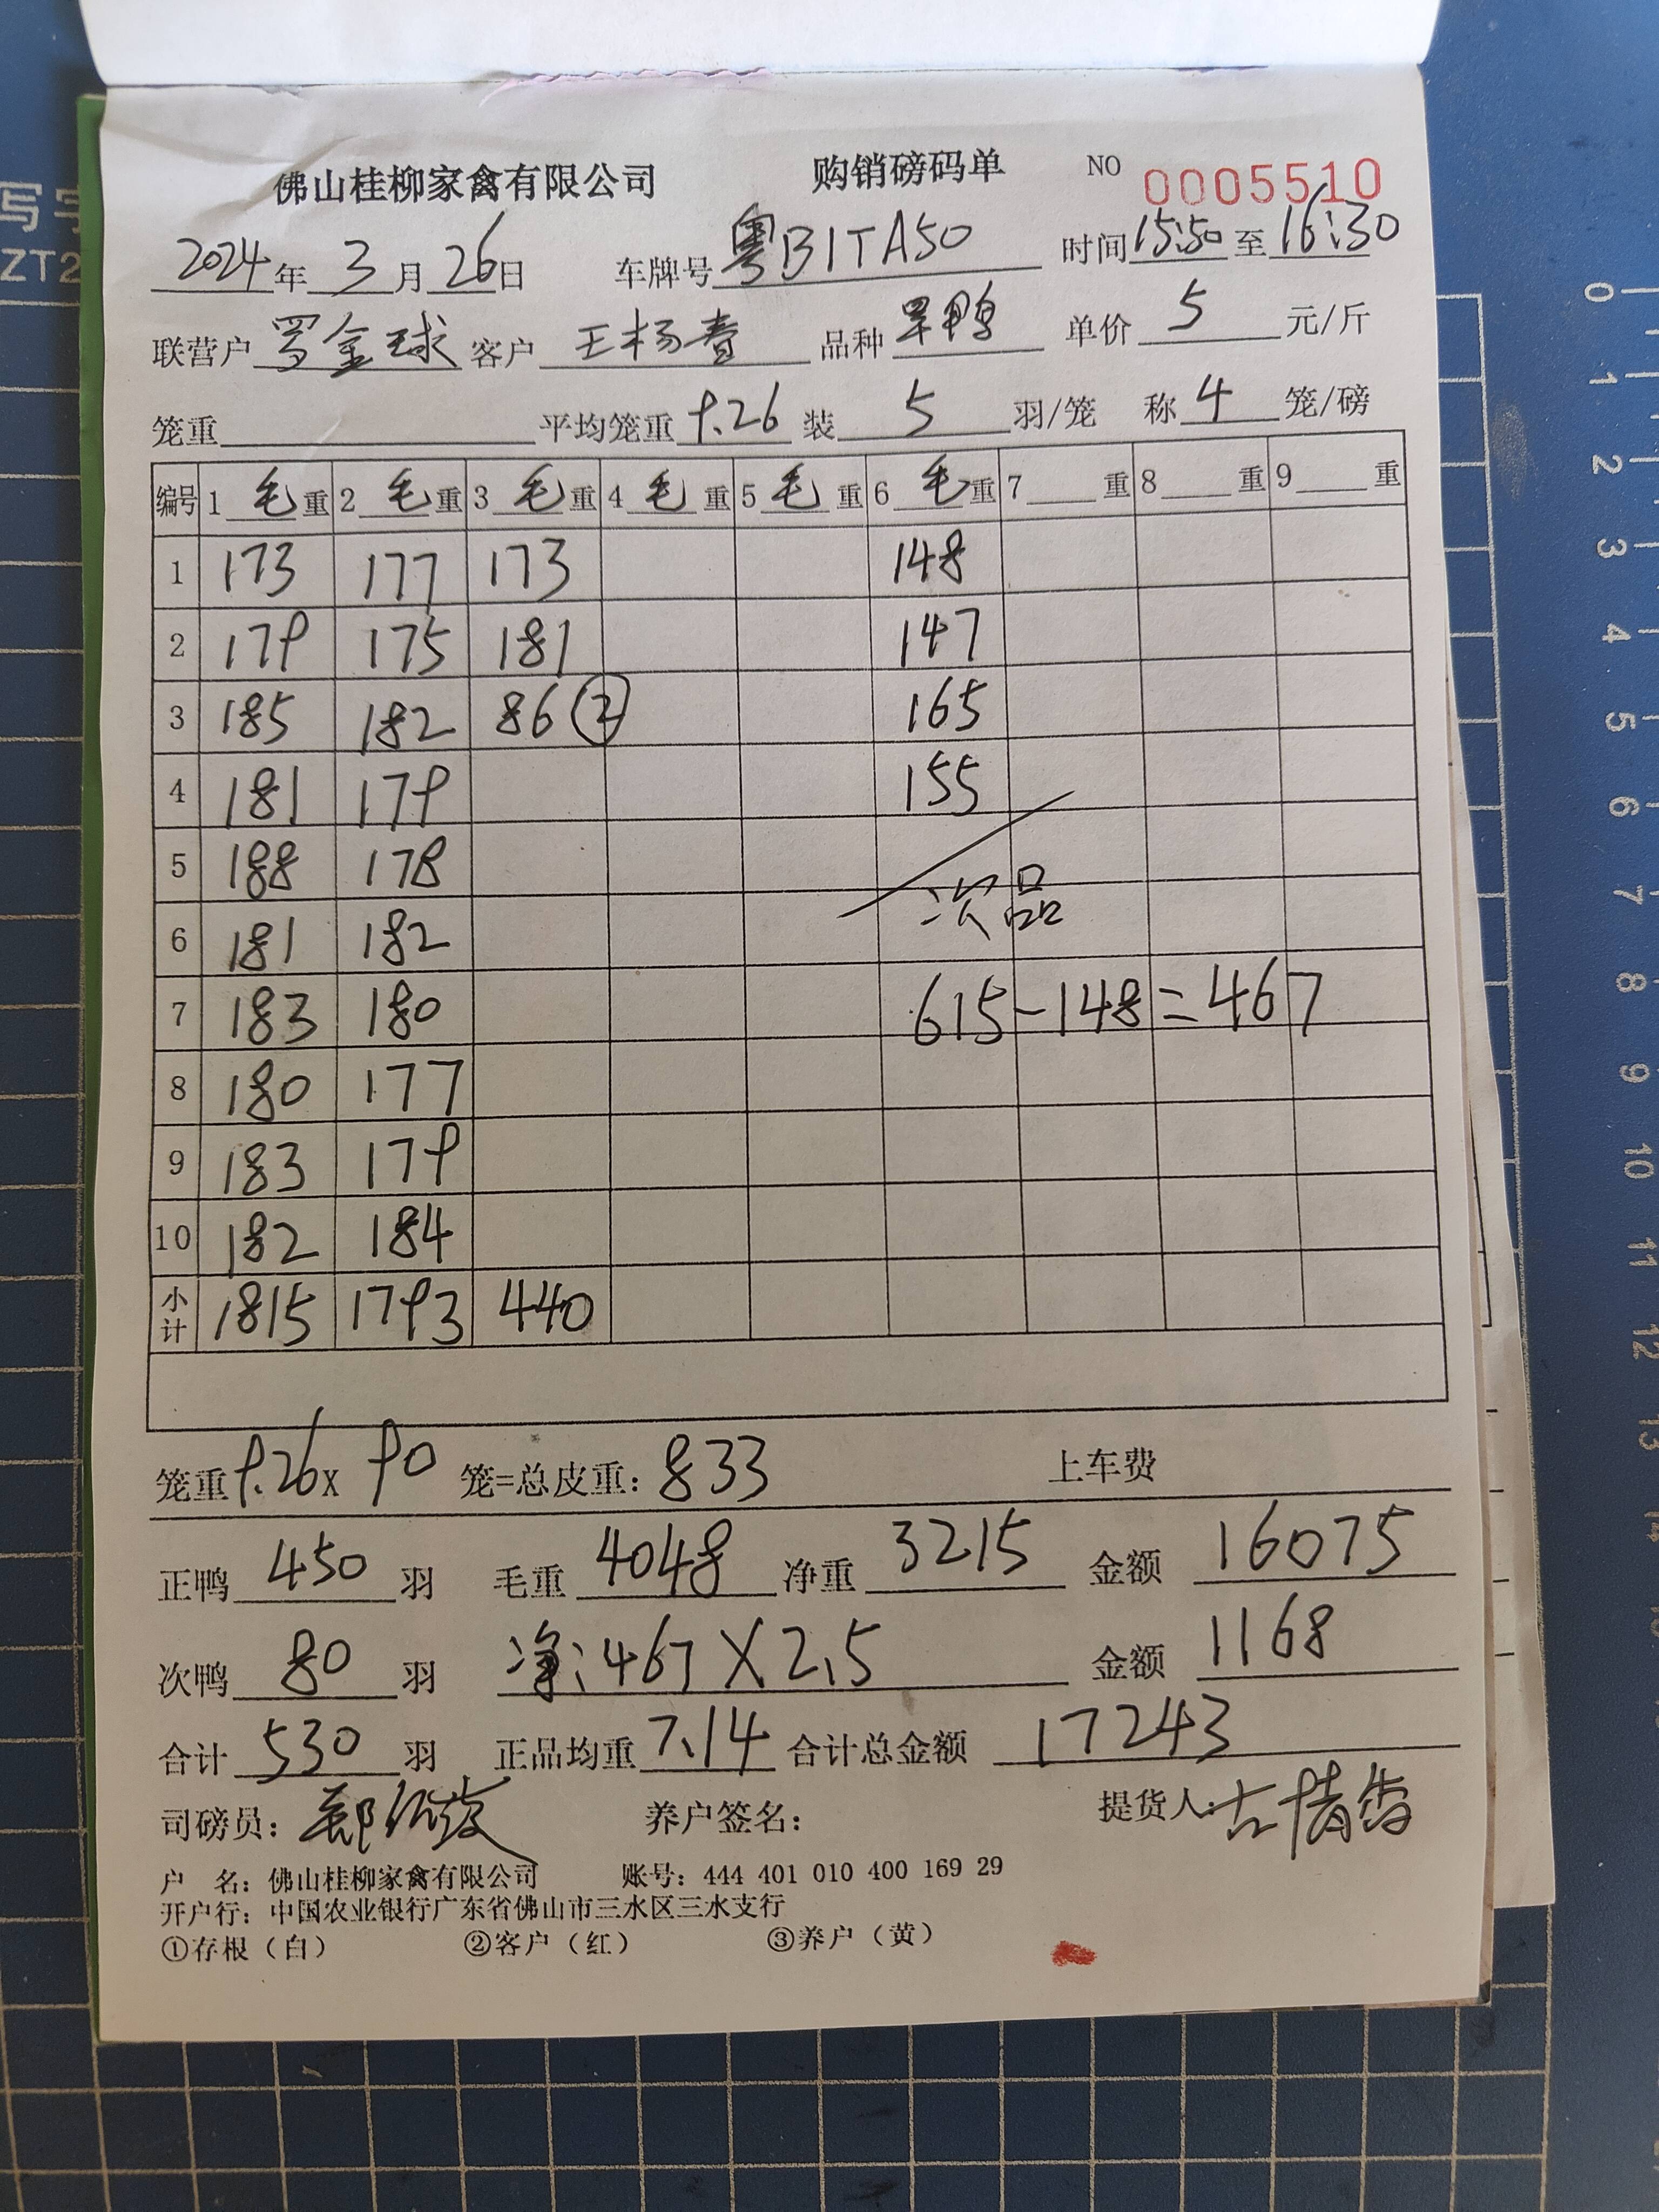 佛山桂柳家禽有限公司 购销磅码单 NO 0005510
2024年3月26日 车牌号粤B1TA50 时间15:50至16:30
联营户罗金球 客户王杨春 品种旱鸭 单价5元/斤
笼重 平均笼重9.26 装5羽/笼 称4笼/磅
编号 1毛重 2毛重 3毛重 4毛重 5毛重 6毛重 7重 8重 9重
1 173 177 173 148
2 179 175 181 147
3 185 182 86② 165
4 181 179 155
5 188 178
6 181 182 次品
7 183 180 615-148=467
8 180 177
9 183 179
10 182 184
小计 1815 1793 440
笼重9.26x90笼=总皮重：833 上车费
正鸭450羽 毛重4048 净重3215 金额16075
次鸭80羽 净:467X2.5 金额1168
合计530羽 正品均重7.14 合计总金额17243
司磅员： 养户签名： 提货人:
户 名：佛山桂柳家禽有限公司 账号：444 401 010 400 169 29
开户行：中国农业银行广东省佛山市三水区三水支行
①存根（白） ②客户（红） ③养户（黄）
写字
ZT2
0
1
2
3
4
5
6
7
8
9
10
11
12
13
14